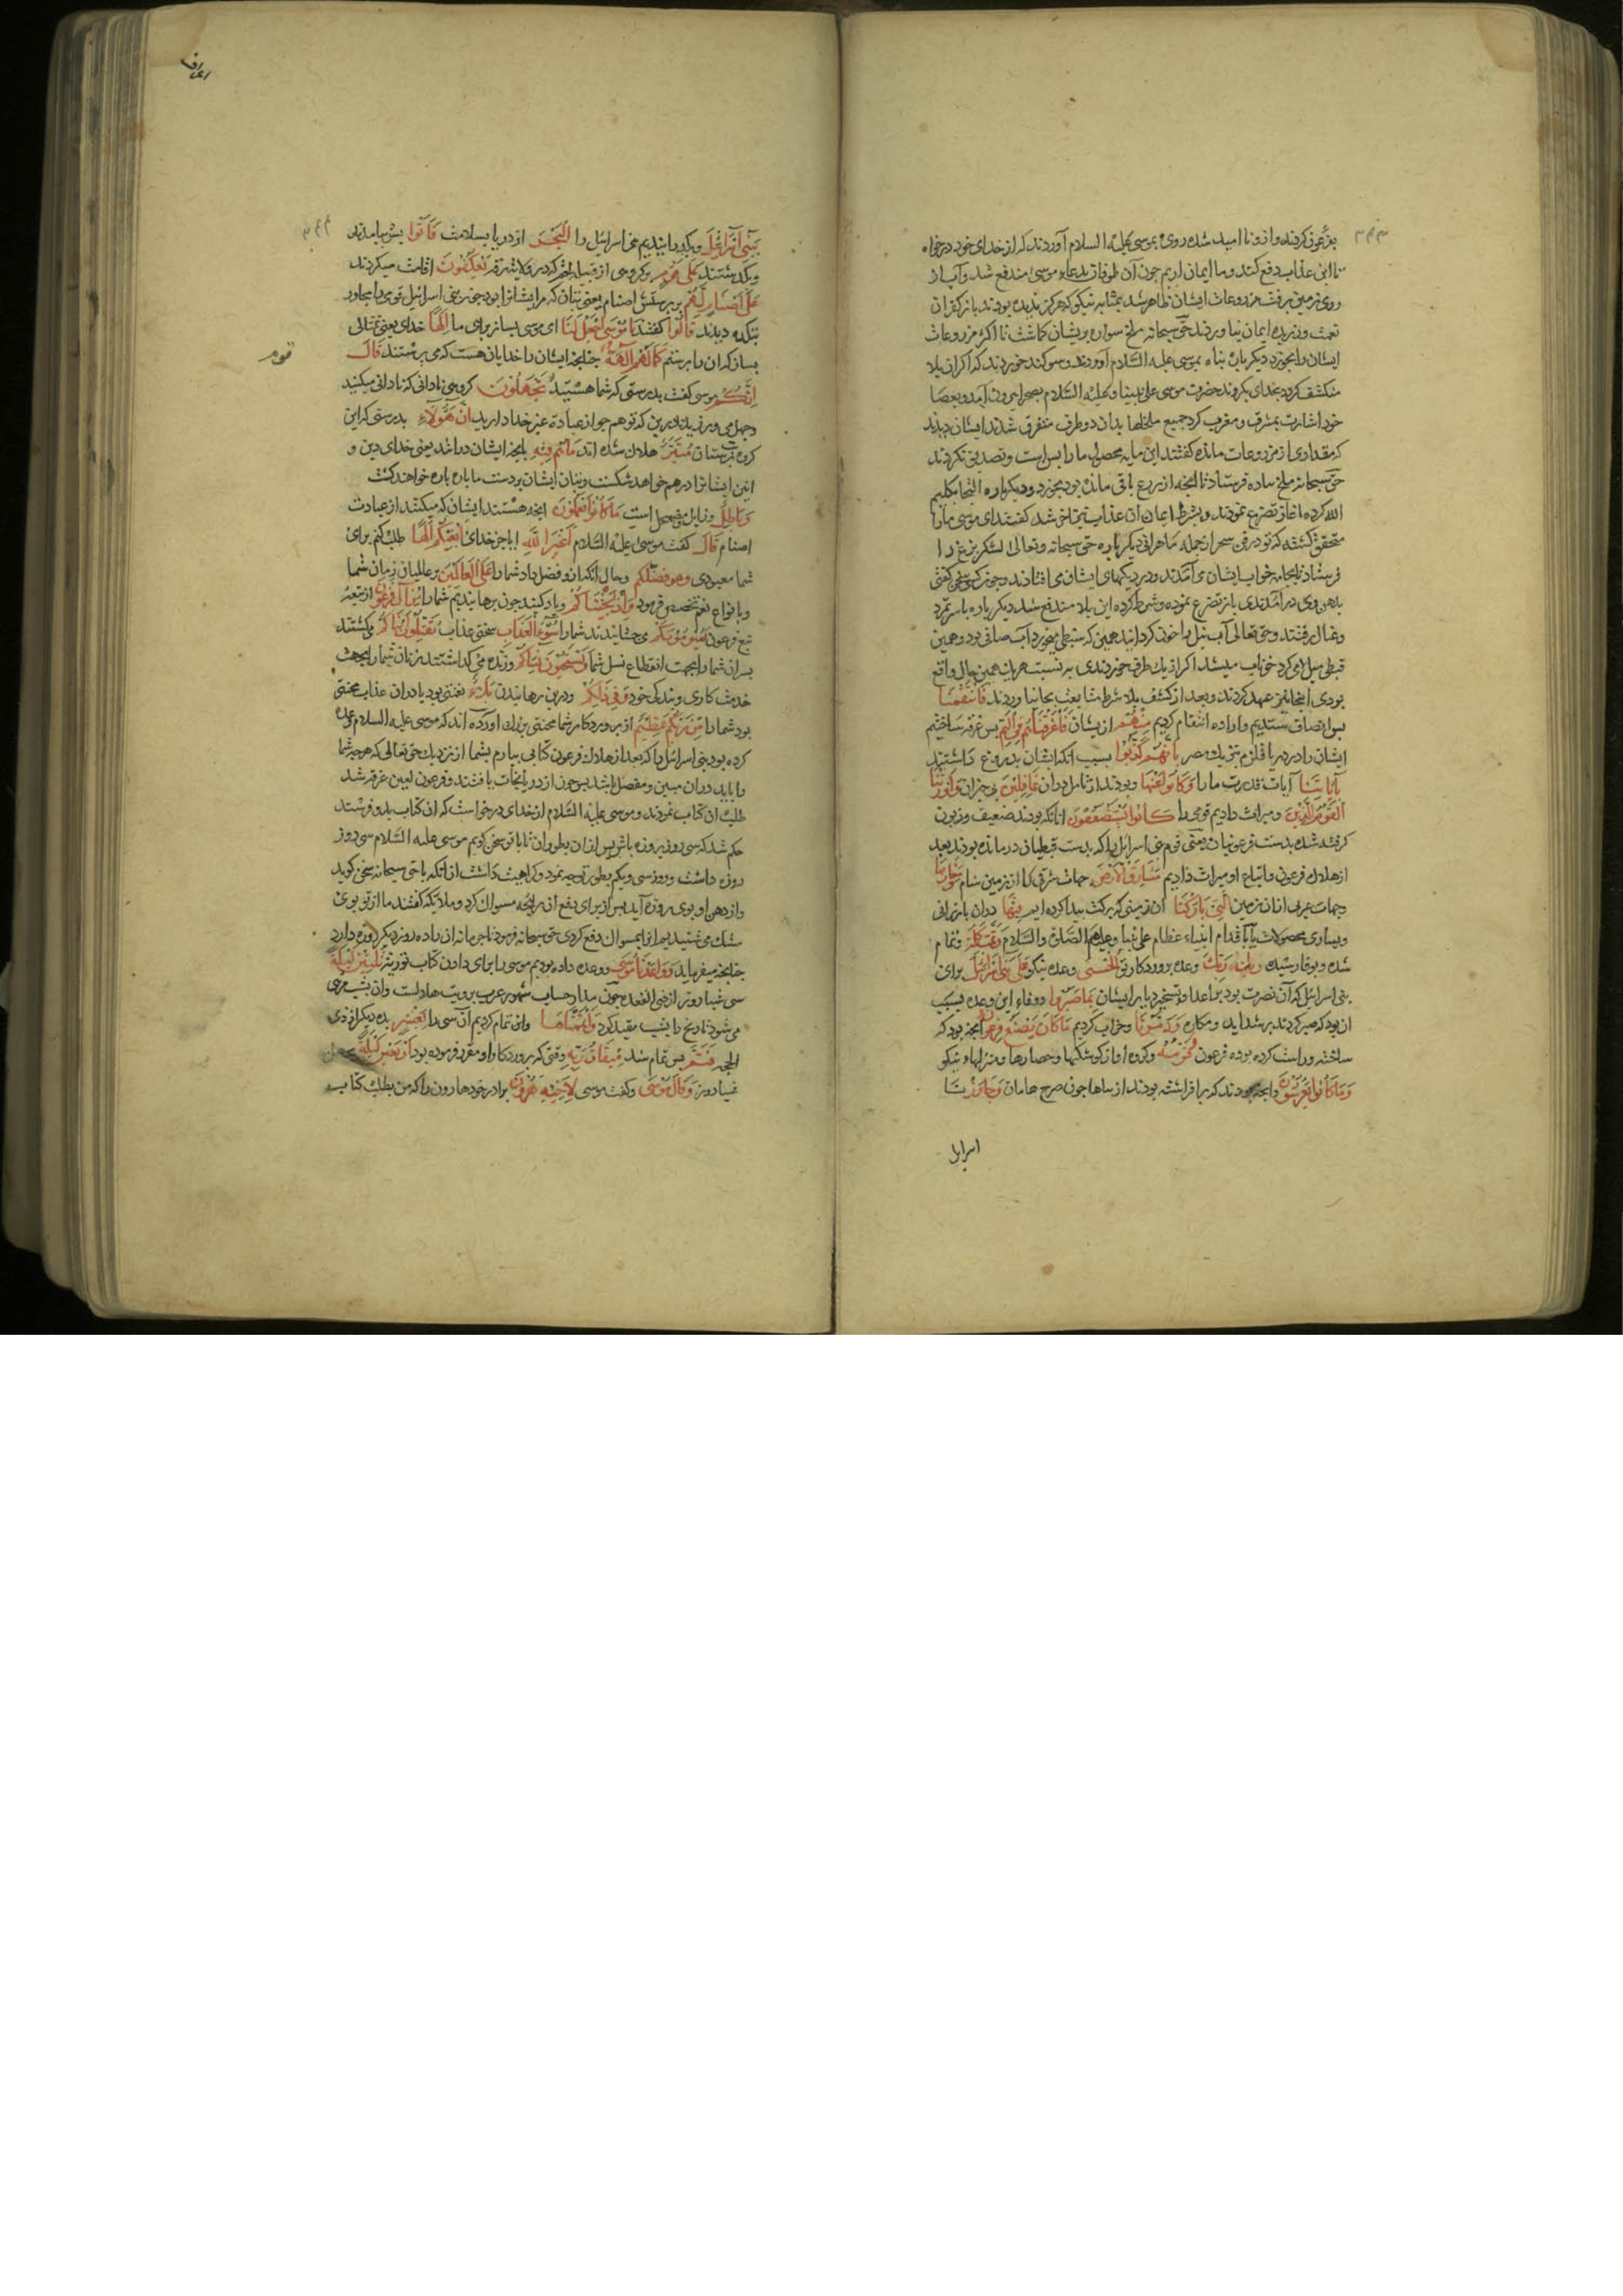 بفرعون کردند و ازو نا امید شده روی بموسی علیه السلام آوردند که از خدای خود درخواه
تا این عذاب دفع کند و ما ایمان اریم چون آن طوفان بدعاء موسی مندفع شد و آب از
روی زمین برفت مزروعات ایشان ظاهر شد بمثابه نیکو که هرگز ندیده بودند باز کفران
نعمت ورزیده ایمان نیاوردند حق سبحانه ملخ سواره بریشان کماشت تا اکثر مزروعات
ایشان را بخورد دیکر باره پناه بموسی علیه السلام آوردند و سوکند خوردند که اکر این بلا
منکشف کردد بخدای بکروند حضرت موسی علی نبینا و علیه السلام بصحرا بیرون آمد و بعصا
خود اشارت بمشرق و مغرب کرد جمیع ملخها بدان دو طرف متفرق شدند ایشان دیدند
که مقداری از مزروعات مانده کفتند این مایه محصول ما را بس است و تصدیق نکردند
حق سبحانه ملخ پیاده فرستاد تا انچه از زرع باقی مانده بود بخورد و دیکرباره التجا بکلیم
الله کرده اغاز تضرع نمودند و بشرط ایمان ان عذاب نیز متلاشی شد کفتند ای موسی ما را
متحقق کشته که تو در فن سحر از جمله ماهرانی دیکرباره حق سبحانه و تعالی لشکر بزغ را
فرستاد تا بجامه خواب ایشان می آمدند و در دیکهای ایشان می افتادند و چون کسی سخن کفتی
بدهن وی در آمدندی باز تضرع نموده و شرط کرده این بلا مندفع شد دیکرباره باسر تمرد
و عناد رفتند و حق تعالی آب نیل را خون کردانید همین که سبطی میخورد آب صافی بود و همین
قبطی میل می کرد خوناب میشد اکر از یک طرف خوردندی به نسبت هر یک همین حال واقع
بودی اینجا نیز عهد کردند و بعد از کشف بلا شرط متابعت بجا نیاوردند فَانْتَقَمْنَا
پس انصاف ستدیم و اراده انتقام کردیم مِنْهُمْ از یشان فَأَغْرَقْنَاهُمْ فِي الْيَمِّ پس غرقه ساختیم
ایشان را در دریا قلزم بنزدیک مصر بِأَنَّهُمْ كَذَّبُوا بسبب انکه ایشان بدروغ داشتند
بِآيَاتِنَا آیات قدرت ما را وَكَانُوا عَنْهَا و بودند از تامل در ان غَافِلِينَ بی خبران وَأَوْرَثْنَا
الْقَوْمَ الَّذِينَ و میراث دادیم قومی را كَانُوا يُسْتَضْعَفُونَ انانکه بودند ضعیف و زبون
کرفته شده بدست فرعونیان یعنی قوم بنی اسرائیل را که بدست قبطیان درمانده بودند بعد
از هلاک فرعون و اتباع او میراث دادیم مَشَارِقَ الْأَرْضِ جهات شرقی که از زمین شام وَمَغَارِبَهَا
و جهات غربی از ان زمین الَّتِي بَارَكْنَا ان زمینی که برکت پیدا کرده ایم فِيهَا در ان بارزانی
و بسیاری محصولات یا باقدام انبیاء عظام علی نبینا و علیهم الصلوة والسلام وَتَمَّتْ كَلِمَةُ و تمام
شده و بوفا رسیده رَبِّكَ وعده پروردکار تو الْحُسْنَى وعده نیکو عَلَى بَنِي إِسْرَائِيلَ برای
بنی اسرائیل که آن نصرت بود بر اعدا و تسخیر دیار ایشان بِمَا صَبَرُوا و وفاء این وعده بسبب
ان بود که صبر کردند بر شداید و مکاره وَدَمَّرْنَا و خراب کردیم مَا كَانَ يَصْنَعُ فِرْعَوْنُ انچه بود که
ساخته و راست کرده بوده فرعون وَقَوْمُهُ و کروه او از کوشکها و حصارها و منزلهاء نیکو
وَمَا كَانُوا يَعْرِشُونَ و انچه بودند که برافراشته بودند از بناها چون صرح هامان وَجَاوَزْنَا
اسرایل
اعراف
بِبَنِي إِسْرَائِيلَ و بکذرانیدیم بنی اسرائیل را الْبَحْرَ از دریا بسلامت فَأَتَوْا پس بیامدند
و بکذشتند عَلَى قَوْمٍ بر کروهی از قبیله لخم که در ولایت رقه يَعْكُفُونَ اقامت میکردند
عَلَى أَصْنَامٍ لَهُمْ بر پرستش اصنام یعنی بتان که مر ایشانرا بود چون بنی اسرائیل قومی را مجاور
بتکده دیدند قَالُوا کفتند يَا مُوسَى اجْعَلْ لَنَا ای موسی بساز برای ما إِلَهًا خدای یعنی تمثالی
بساز که ان را پرستیم كَمَا لَهُمْ آلِهَةٌ چنانچه ایشان را خدایان هست که می پرستند قَالَ
إِنَّكُمْ موسی کفت بدرستی که شما هستید قَوْمٌ تَجْهَلُونَ کروهی نادانی که نادانی میکنید
و جهل می ورزید بدین که توهم جواز عبادة غیر خدا دارید إِنَّ هَؤُلَاءِ بدرستی که این
کروه بت پرستان مُتَبَّرٌ هلاک شده اند مَا هُمْ فِيهِ بانچه ایشان در انند یعنی خدای دین و
ایین ایشانرا درهم خواهد شکست و بتان ایشان بر دست ما پاره پاره خواهند کشت
وَبَاطِلٌ و زایل و مضمحل است مَا كَانُوا يَعْمَلُونَ انچه هستند ایشان که میکنند از عبادت
اصنام قَالَ کفت موسی علیه السلام أَغَيْرَ اللَّهِ ایا جز خدای أَبْغِيكُمْ إِلَهًا طلب کنم برای
شما معبودی وَهُوَ فَضَّلَكُمْ و حال انکه او فضل داد شما را عَلَى الْعَالَمِينَ بر عالمیان زمان شما
و بانواع نعم تخصیص فرمود وَإِذْ أَنْجَيْنَاكُمْ و یاد کنید چون برهانیدیم شما را مِنْ آلِ فِرْعَوْنَ از تبعه
تبع فرعون يَسُومُونَكُمْ می چشانیدند شما را سُوءَ الْعَذَابِ سختی عذاب يُقَتِّلُونَ أَبْنَاءَكُمْ می کشتند
پسران شما را بجهت انقطاع نسل شما وَيَسْتَحْيُونَ نِسَاءَكُمْ و زنده می کذاشتند زنان شما را بجهت
خدمت کاری و بندکی خود وَفِي ذَلِكُمْ و درین رهانیدن بَلَاءٌ نعمتی بود یا در ان عذاب محنتی
بود شما را مِنْ رَبِّكُمْ عَظِيمٌ از پروردکار شما محنتی بزرک اورده اند که موسی علیه السلام وعده
کرده بود بنی اسرائیل را که بعد از هلاک فرعون کتابی بیارم بشما از نزدیک حق تعالی که هرچه شما
را باید در ان مبین و مفصل باشد پس چون از دریا نجات یافتند و فرعون لعین غرقه شد
طلب ان کتاب نمودند و موسی علیه السلام از خدای درخواست که ان کتاب بدو فرستد
حکم شد که سی روز بروزه باش پس از ان بطور ای تا با تو سخن کویم موسی علیه السلام سی روز
روزه داشت و روز سی و یکم بطور توجه نمود و کراهیت داشت از انکه با حق سبحانه سخن کوید
و از دهن او بوی روزه آید پس از برای دفع ان رایحه مسواک کرد و ملایکه کفتند ما از تو بوی
مشک می شنیدیم انرا بمسواک دفع کردی حق سبحانه فرمود تا بجرمانه ان ده روز دیکر روزه دارد
چنانچه میفرماید وَوَاعَدْنَا مُوسَى و وعده داده بودیم موسی را برای دادن کتاب توریة ثَلَاثِينَ لَيْلَةً
سی شبانروز از ذی القعده چون مدار حساب شهور عرب برویت هلالست و ان بشب مرئی
می شود تاریخ را بشب مقید کرد وَأَتْمَمْنَاهَا و انرا تمام کردیم آن سی را بِعَشْرٍ بده دیکر از ذی
الحجه فَتَمَّ پس تمام شد مِيقَاتُ رَبِّهِ وقتی که پروردکار او مقرر فرموده بود أَرْبَعِينَ لَيْلَةً چهل
شبانروز وَقَالَ مُوسَى و کفت موسی لِأَخِيهِ هَارُونَ برادر خود هارون را که من بطلب کتاب
قوم